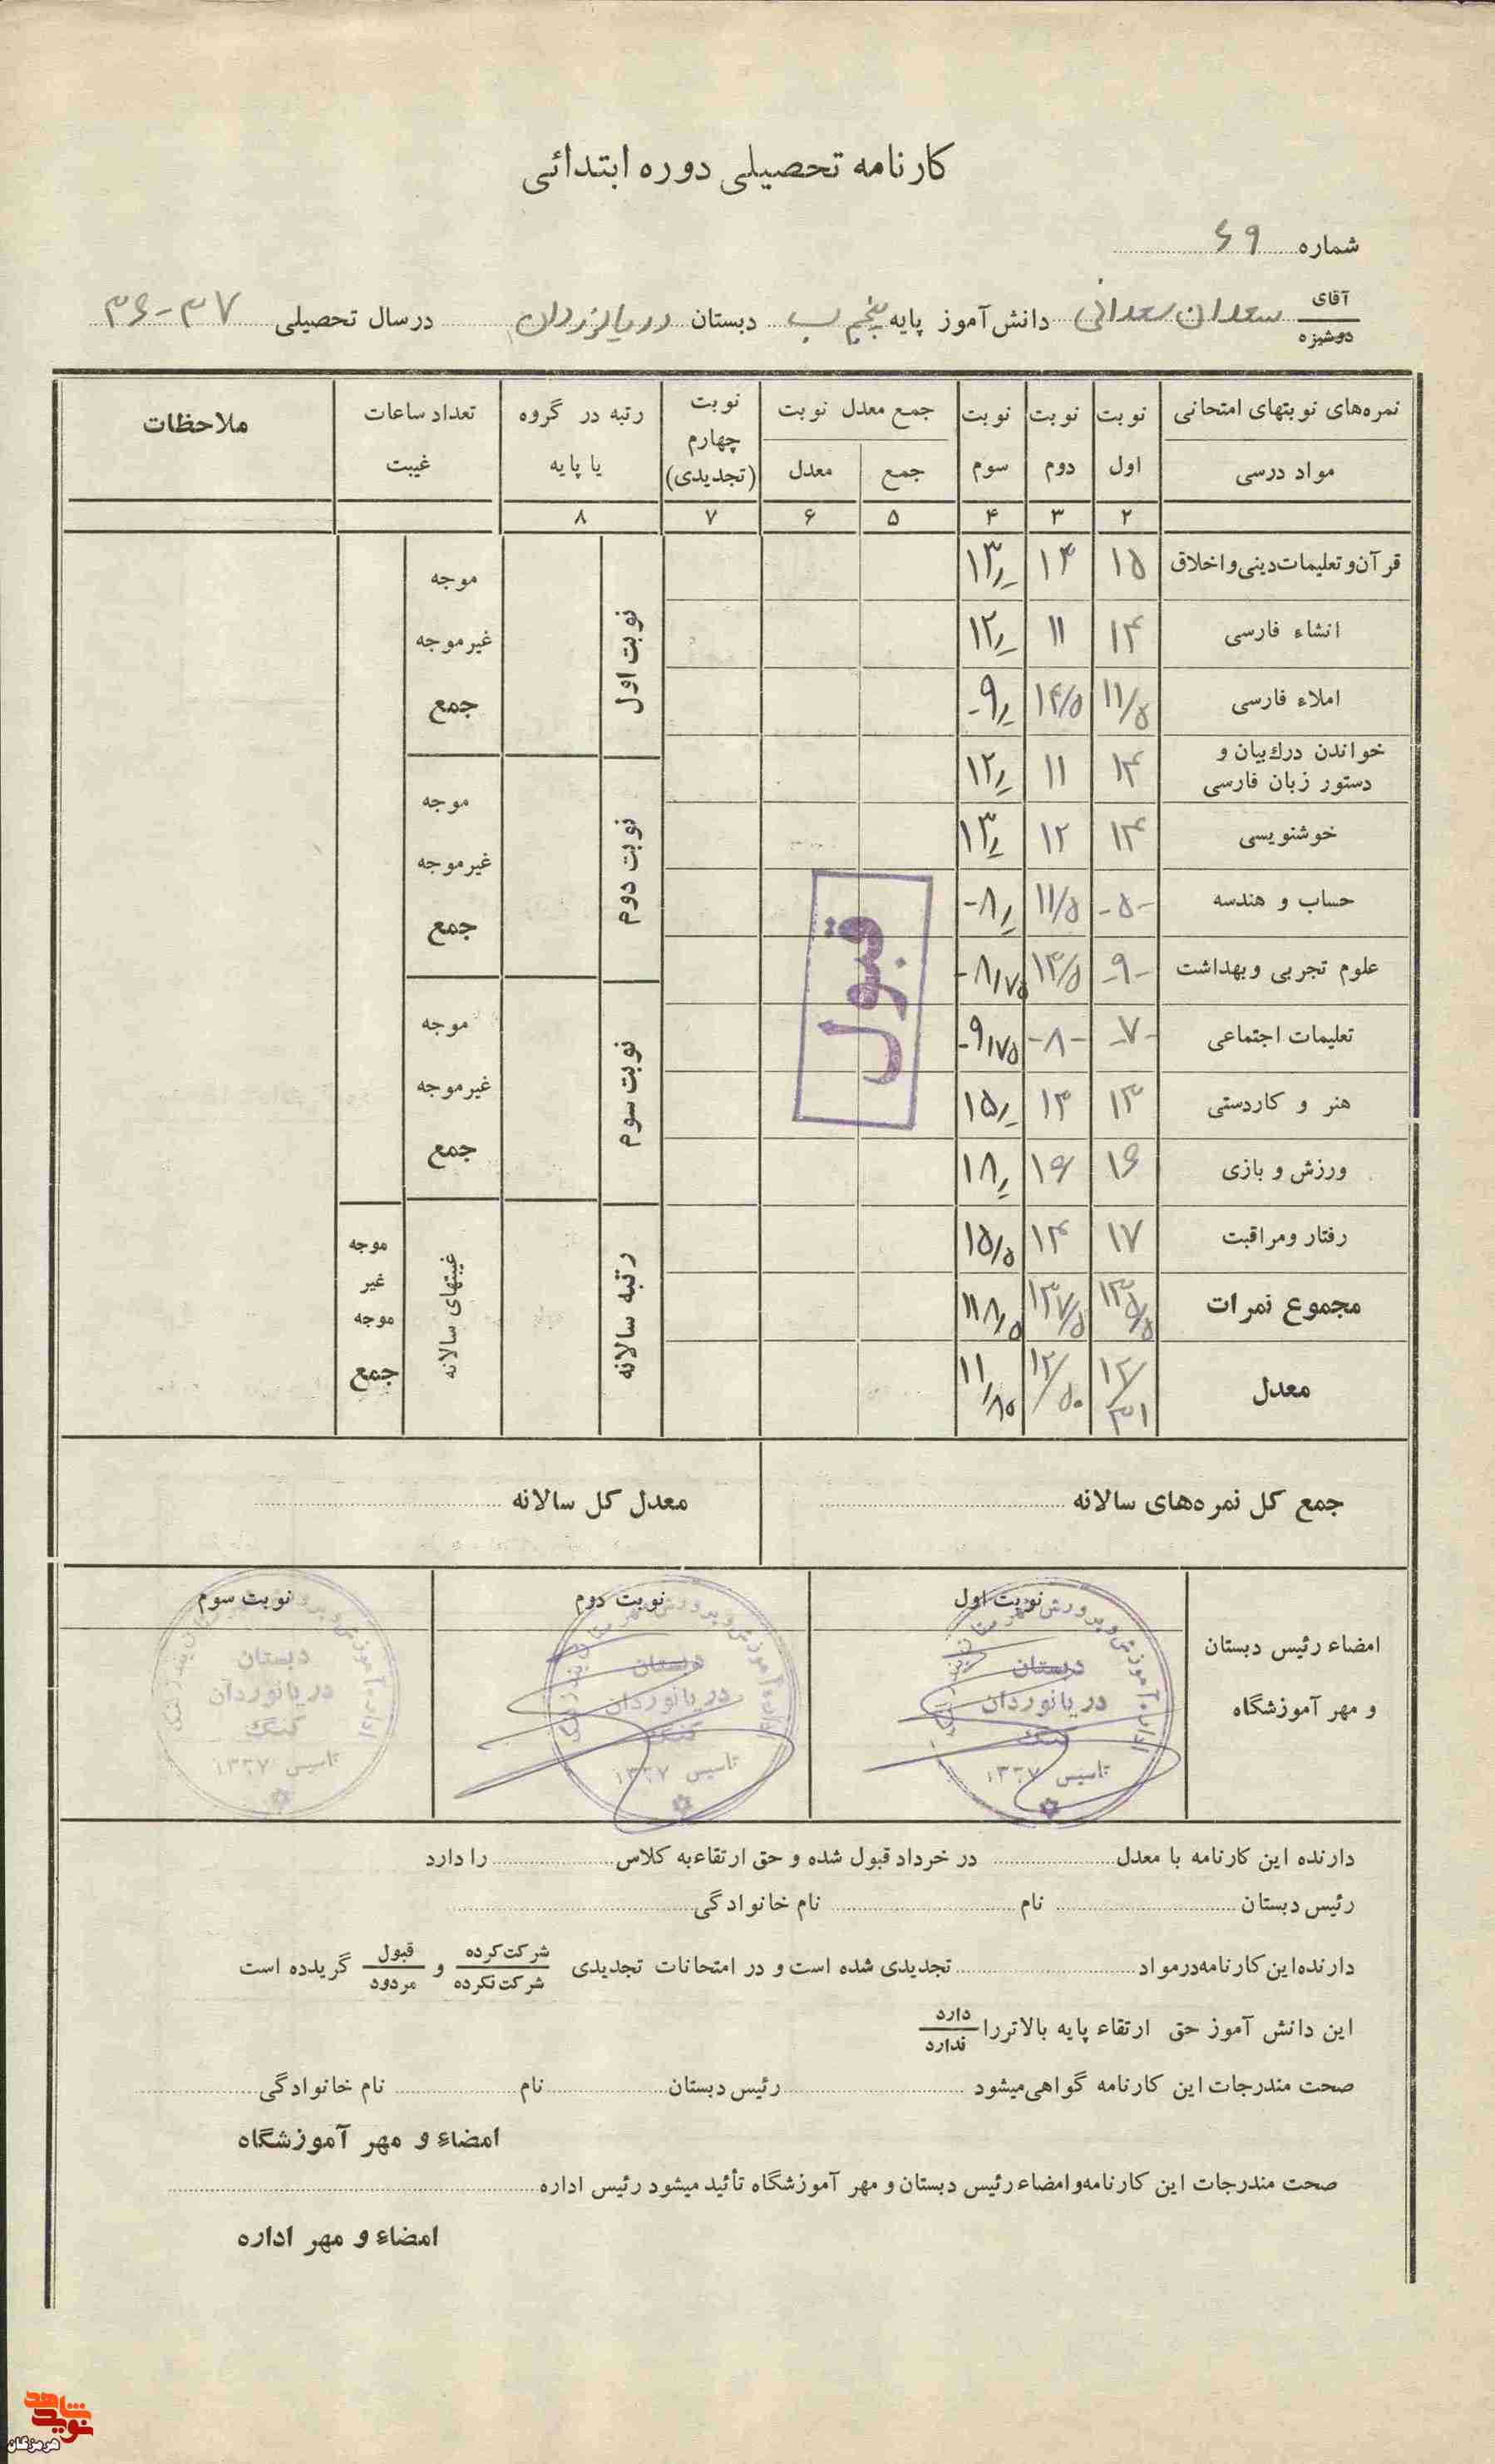 کارنامه تحصیلی دوره ابتدائی
شماره ۶۹
آقای / دوشیزه سعدان سعدانی دانش‌آموز پایه پنجم ب دبستان دریانوردان در سال تحصیلی ۳۷-۳۶
نمره‌های نوبتهای امتحانی نوبت نوبت نوبت جمع معدل نوبت نوبت رتبه در گروه تعداد ساعات ملاحظات
مواد درسی اول دوم سوم جمع معدل چهارم (تجدیدی) یا پایه غیبت
۲ ۳ ۴ ۵ ۶ ۷ ۸
قرآن و تعلیمات دینی و اخلاق ۱۵ ۱۴ ۱۳٫
انشاء فارسی ۱۴ ۱۱ ۱۲٫
املاء فارسی ۱۱/۵ ۱۴/۵ -۹٫
خواندن درك بیان و
دستور زبان فارسی ۱۴ ۱۱ ۱۲٫
خوشنویسی ۱۴ ۱۲ ۱۳٫
حساب و هندسه -۵- ۱۱/۵ -۸٫
علوم تجربی و بهداشت -۹- ۱۳/۵ -۸/۷۵
تعلیمات اجتماعی -۷- -۸- -۹/۷۵
هنر و کاردستی ۱۳ ۱۴ ۱۵٫
ورزش و بازی ۱۶ ۱۶ ۱۸٫
رفتار ومراقبت ۱۷ ۱۴ ۱۵/۵
مجموع نمرات ۱۳۵/۵ ۱۳۷/۵ ۱۱۸/۵
معدل ۱۲/۳۱ ۱۲/۵۰ ۱۱/۸۵
قبول
نوبت اول موجه غیرموجه جمع
نوبت دوم موجه غیرموجه جمع
نوبت سوم موجه غیرموجه جمع
رتبه سالانه غیبتهای سالانه موجه غیر موجه جمع
جمع کل نمره‌های سالانه معدل کل سالانه
امضاء رئیس دبستان نوبت اول نوبت دوم نوبت سوم
و مهر آموزشگاه
دبستان
دریانوردان
کنگ
تاسیس ۱۳۲۷
دبستان
دریانوردان
کنگ
تاسیس ۱۳۲۷
دبستان
دریانوردان
کنگ
تاسیس ۱۳۲۷
دارنده این کارنامه با معدل در خرداد قبول شده و حق ارتقاء به کلاس را دارد
رئیس دبستان نام نام خانوادگی
دارنده این کارنامه در مواد تجدیدی شده است و در امتحانات تجدیدی شرکت کرده / شرکت نکرده و قبول / مردود گریده است
این دانش آموز حق ارتقاء پایه بالاتر را دارد / ندارد
صحت مندرجات این کارنامه گواهی میشود رئیس دبستان نام نام خانوادگی
امضاء و مهر آموزشگاه
صحت مندرجات این کارنامه و امضاء رئیس دبستان و مهر آموزشگاه تأئید میشود رئیس اداره
امضاء و مهر اداره
نوید شاهد
هرمزگان